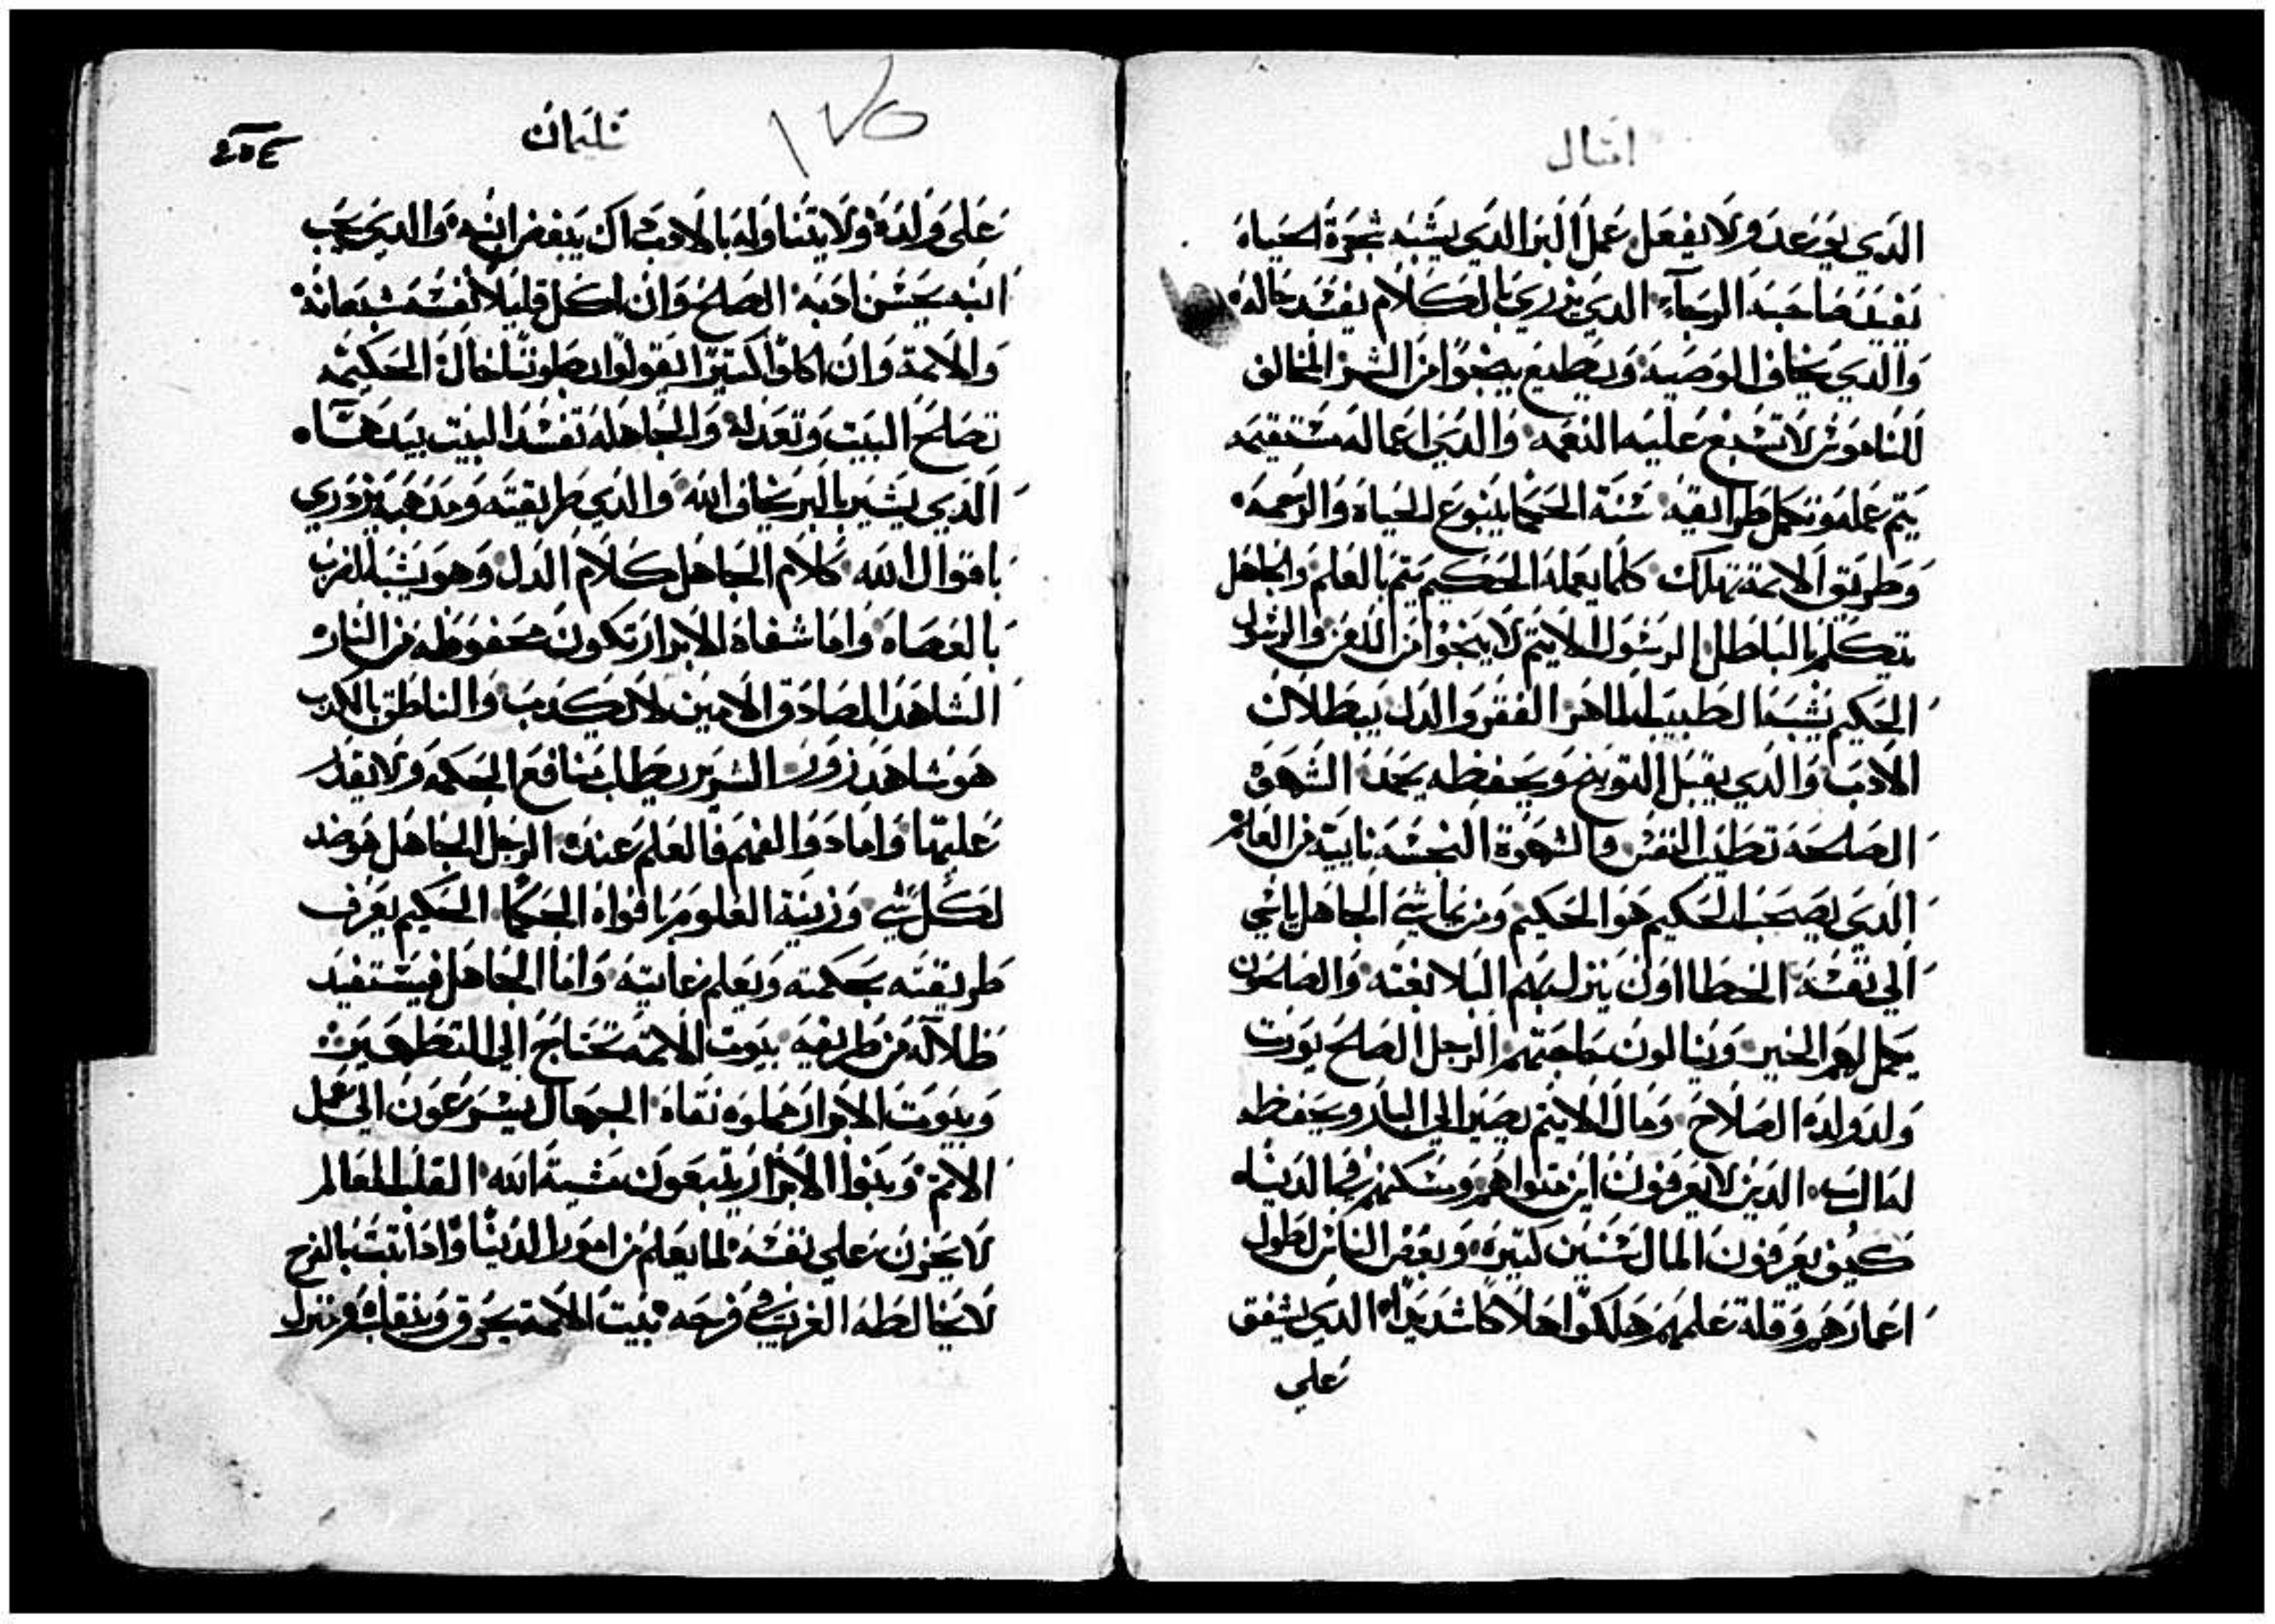 امثال
الذي يوعد ولا يفعل عمل البر الذي يشبه شجرة الحياه
تفيد صاحبه الرجاء الذي يزدري بالكلام يفسد حاله
والذي يخاف الوصيه ويطيع ينجوا من الشر المخالف
للناموس لا تسبغ عليه النعمه والذي اعماله مستقيمه
يتم عمله وتكمل طرايقه سنة الحكما ينبوع الحياه والرحمه
وطريق الاثمة تهلك كلما يعمله الحكيم يتم بالعلم والجاهل
يتكلم بالباطل الرسول الاثيم لا ينجوا من اللعن والرسول
الحكيم يشبه الطبيب الماهر الفقر والذل يبطلان
الادب والذي يقبل التوبيخ ويحفظه يحمد الشهوة
الصالحه تطيب النفس والشهوة النجسه نابية من العلم
الذي يصحب الحكيم هو الحكيم ومن يماشي الجاهل ياتي
الي نفسه الخطااون ينزل بهم البلا بغته والصالحون
يجمل لهم الخير وينالون حاجتهم الرجل الصالح يورث
ولد ولده الصلاح ومال الاثيم يصير الي البار ويحفظه
له الذين لا يعرفون اين متواهم ومسكنهم في الدنيا
كيف يعرفون المال سنين كتيره وبعض الناس لطول
اعمارهم وقلة علمهم هلكوا هلاكا شديدا الذي يشفق
علي
سليمان
١٧٥
علي ولده ولا يتناوله بالادب ذاك يبغض ابنه والذي يحب
ابنه يحسن ادبه الصالح وان اكل قليلا نفسه شبعانة
والاثمة وان اكلوا كتيرا يقولوا بطوننا خالة الحكيمه
تصلح البيت وتعدله والجاهله تفسد البيت بيدها
الذي يسير بالبر يخاف الله والذي طريقته ومذهبه يزدري
باقوال الله كلام الجاهل كلام الذل وهو يشبه الضرب
بالعصاه واما شفاه الابرار تكون محفوظه من النار
الشاهد الصادق الامين لا يكذب والناطق بالكذب
هو شاهد زور الشرير يطلب منافع الحكمه ولا يقدر
عليها واما ذوا الفهم فالعلم عنده الرجل الجاهل موضد
لكل شي وزينة العلوم بافواه الحكما الحكيم يعرف
طريقته بحكمته ويعلم غايته واما الجاهل فيستفيد
ظلاله من طريقه بيوت الاثمه تحتاج الي التطهير
وبيوت الابرار مملوه نقاه الجهال يسرعون الي عمل
الاثم وبنوا الابرار يتبعون مشية الله القلب العالم
لا يحزن علي نفسه لما يعلم من امور الدنيا واذا انبت بالفرح
لا يخالطه الغريب في فرحه بيت الاثمة يحرق وينقلب ومنزل